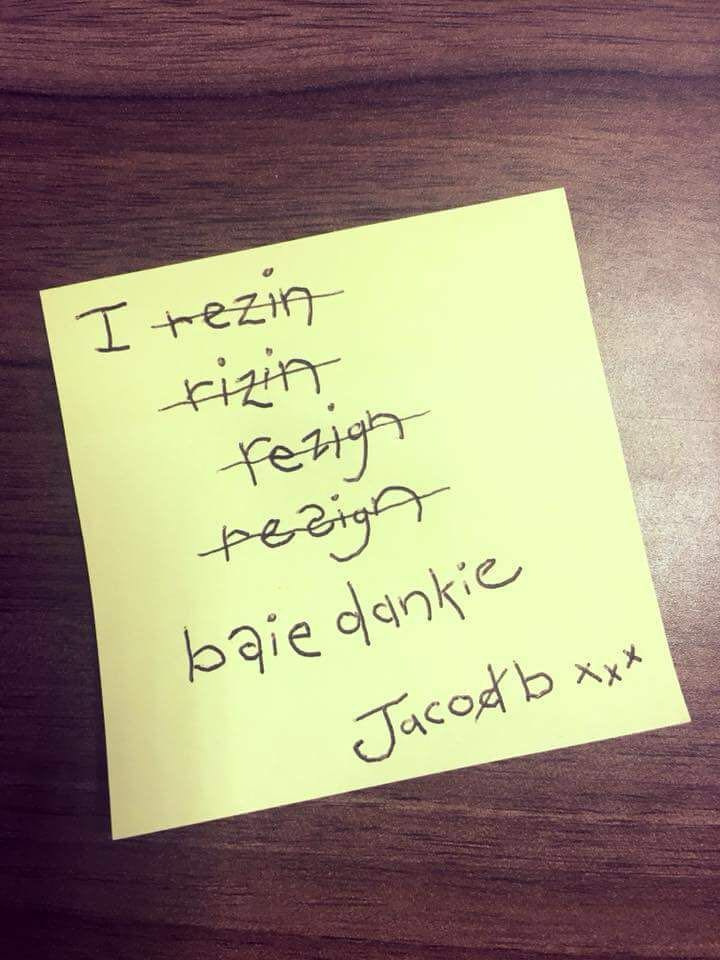 I rezin
rizin
rezign
resign
baie dankie
Jacodb xxx